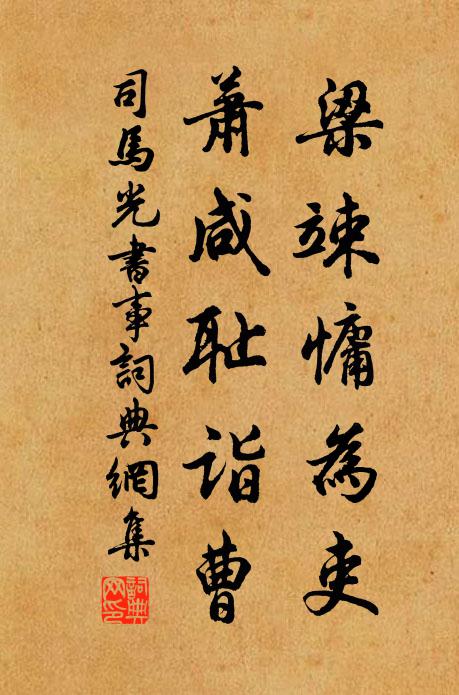 梁竦慵為吏
蕭咸耻詣曹
司馬光書事詞典網集
詞典網印